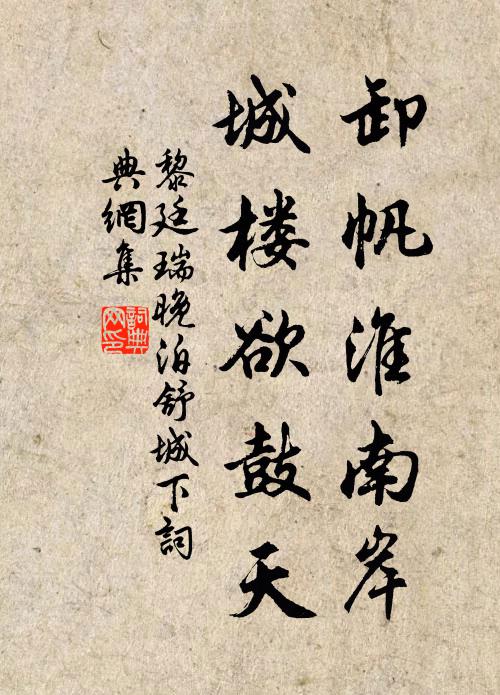 卸帆淮南岸
城楼欲鼓天
黎廷瑞晚泊舒城下詞
典網集
詞典
网印